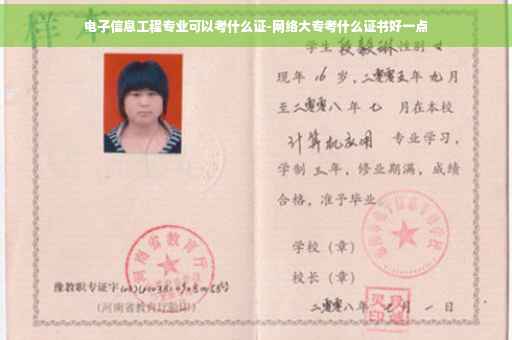 电子信息工程专业可以考什么证-网络大专考什么证书好一点
样本
学生段毅琳性别女
现年16岁，二零零五年九月
至二零零八年七月在本校
计算机应用专业学习，
学制三年，修业期满，成绩
合格，准予毕业
学校（章）
校长（章）
二零零八年七月一日
河南省教育厅
豫教职专证字
（河南省教育厅验印）